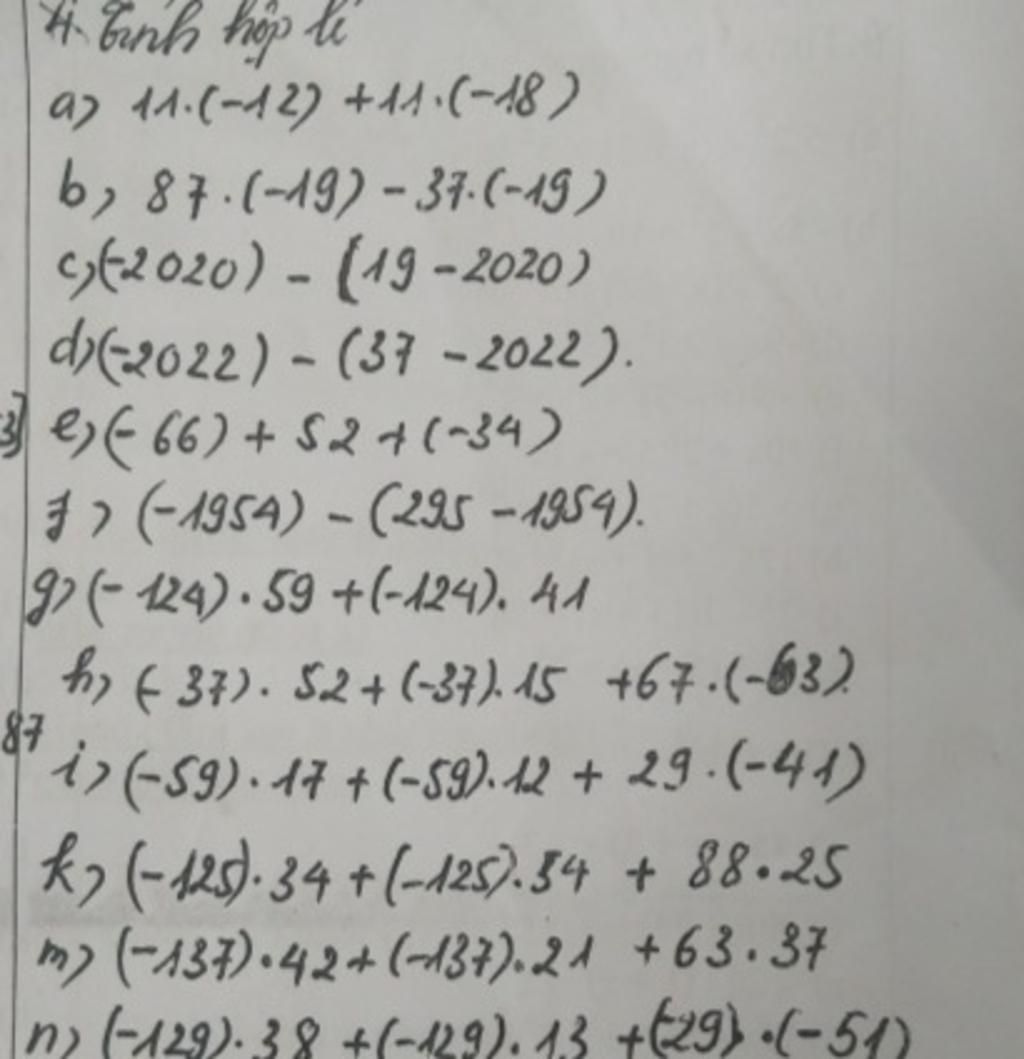 4. Tính hợp lí
a) 11.(-12) + 11.(-18)
b) 87.(-19) - 37.(-19)
c) (-2020) - (19 - 2020)
d) (-2022) - (37 - 2022).
3] e) (-66) + 52 + (-34)
f) (-1954) - (295 - 1954).
g) (-124) . 59 + (-124). 41
h) (-37). 52 + (-37). 15 + 67.(-63).
87
i) (-59) . 17 + (-59). 12 + 29 . (-41)
k) (-125). 34 + (-125). 54 + 88 . 25
m) (-137) . 42 + (-137). 21 + 63 . 37
n) (-129). 38 + (-129). 13 + (-29) . (-51)